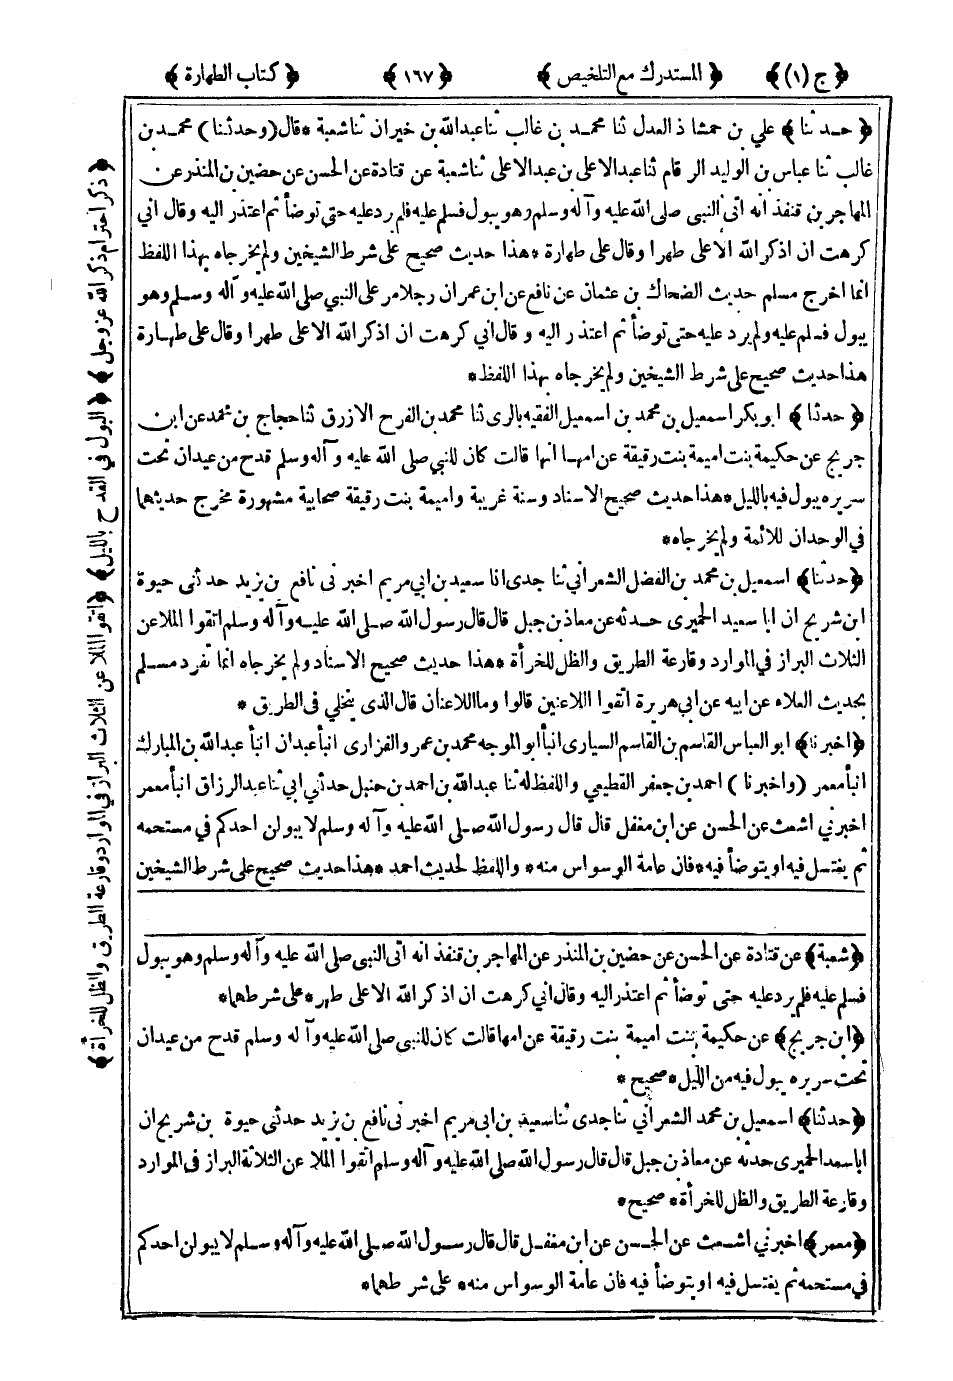 ﴿ ج (١) ﴾ ﴿ المستدرك مع التلخيص ﴾ ﴿ ١٦٧ ﴾ ﴿ كتاب الطهارة ﴾
﴿ حدثنا ﴾ علي بن حمشاذ العدل ثنا محمد بن غالب ثنا عبدالله بن خيران ثنا شعبة * قال (وحدثنا) محمد بن
غالب ثنا عباس بن الوليد الرقام ثنا عبدالاعلى بن عبدالاعلى ثنا شعبة عن قتادة عن الحسن عن حضين بن المنذر عن
المهاجر بن قنفذ انه اتى النبي صلى الله عليه وآله وسلم وهو يبول فسلم عليه فلم يرد عليه حتى توضأ ثم اعتذر اليه وقال اني
كرهت ان اذكر الله الا على طهر او قال على طهارة * هذا حديث صحيح على شرط الشيخين ولم يخرجاه بهذا اللفظ
انما اخرج مسلم حديث الضحاك بن عثمان عن نافع عن ابن عمر ان رجلا مر على النبي صلى الله عليه وآله وسلم وهو
يبول فسلم عليه ولم يرد عليه حتى توضأ ثم اعتذر اليه و قال اني كرهت ان اذكر الله الا على طهر او قال على طهارة
هذا حديث صحيح على شرط الشيخين ولم يخرجاه بهذا اللفظ *
﴿ حدثنا ﴾ ابو بكر اسمعيل بن محمد بن اسمعيل الفقيه بالرى ثنا محمد بن الفرج الازرق ثنا حجاج بن محمد عن ابن
جريج عن حكيمة بنت اميمة بنت رقيقة عن امها انها قالت كان للنبي صلى الله عليه وآله وسلم قدح من عيدان تحت
سريره يبول فيه بالليل * هذا حديث صحيح الاسناد وسنة غريبة واميمة بنت رقيقة صحابية مشهورة مخرج حديثها
في الوحدان للائمة ولم يخرجاه *
﴿ حدثنا ﴾ اسمعيل بن محمد بن الفضل الشعراني ثنا جدى انا سعيد بن ابي مريم اخبرنى نافع بن يزيد حدثنى حيوة
ابن شريح ان ابا سعيد الحميرى حدثه عن معاذ بن جبل قال قال رسول الله صلى الله عليه وآله وسلم اتقوا الملاعن
الثلاث البراز في الموارد وقارعة الطريق والظل للخرأة * هذا حديث صحيح الاسناد ولم يخرجاه انما تفرد مسلم
بحديث العلاء عن ابيه عن ابي هريرة اتقوا اللاعنين قالوا وما اللاعنان قال الذى يتخلى فى الطريق *
﴿ اخبرنا ﴾ ابو العباس القاسم بن القاسم السيارى انبأ ابو الموجه محمد بن عمرو الفزارى انبأ عبدان انبأ عبدالله بن المبارك
انبأ معمر (واخبرنا) احمد بن جعفر القطيعي واللفظ له ثنا عبدالله بن احمد بن حنبل حدثني ابي ثنا عبدالرزاق انبأ معمر
اخبرني اشعث عن الحسن عن ابن مغفل قال قال رسول الله صلى الله عليه وآله وسلم لا يبولن احدكم في مستحمه
ثم يغتسل فيه او يتوضأ فيه * فان عامة الوسواس منه * واللفظ لحديث احمد * هذا حديث صحيح على شرط الشيخين
﴿ شعبة ﴾ عن قتادة عن الحسن عن حضين بن المنذر عن المهاجر بن قنفذ انه اتى النبي صلى الله عليه وآله وسلم وهو يبول
فسلم عليه فلم يرد عليه حتى توضأ ثم اعتذر اليه وقال اني كرهت ان اذكر الله الا على طهر * على شرطهما *
﴿ ابن جريج ﴾ عن حكيمة بنت اميمة بنت رقيقة عن امها قالت كان للنبي صلى الله عليه وآله وسلم قدح من عيدان
تحت سريره يبول فيه من الليل * صحيح *
﴿ حدثنا ﴾ اسمعيل بن محمد الشعراني ثنا جدى ثنا سعيد بن ابى مريم اخبرنى نافع بن يزيد حدثنى حيوة بن شريح ان
ابا سعد الحميرى حدثه عن معاذ بن جبل قال قال رسول الله صلى الله عليه وآله وسلم اتقوا الملاعن الثلاثة البراز فى الموارد
وقارعة الطريق والظل للخرأة * صحيح *
﴿ معمر ﴾ اخبرني اشعث عن الحسن عن ابن مغفل قال قال رسول الله صلى الله عليه وآله وسلم لا يبولن احدكم
في مستحمه ثم يغتسل فيه او يتوضأ فيه فان عامة الوسواس منه * على شرطهما *
﴿ ذكر احترام ذكر الله عز وجل ﴾ ﴿ البول في القدح بالليل ﴾ ﴿ اتقوا الملاعن الثلاث البراز في الموارد وقارعة الطريق والظل للخرأة ﴾